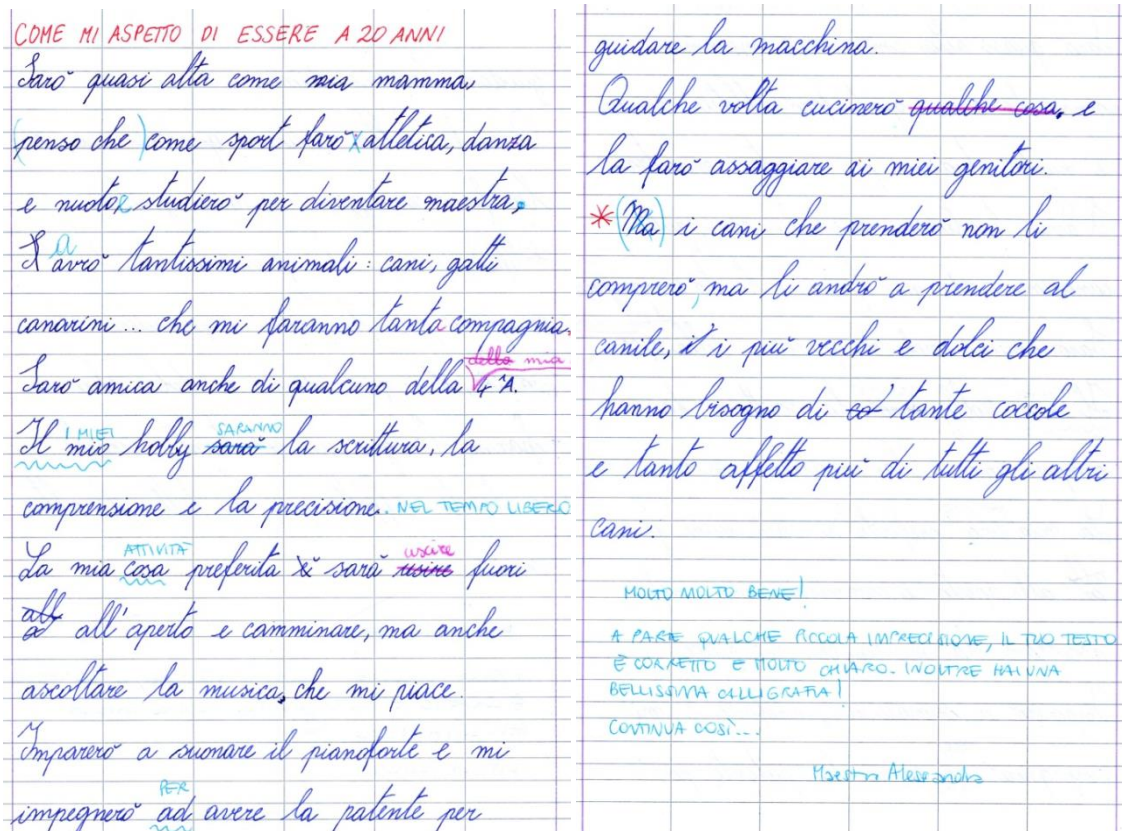 COME MI ASPETTO DI ESSERE A 20 ANNI
Sarò quasi alta come mia mamma,
(penso che) come sport farò atletica, danza
e nuoto e studierò per diventare maestra.
a
avrò tantissimi animali: cani, gatti
canarini... che mi faranno tanta compagnia.
della mia
Sarò amica anche di qualcuno della 4ªA.
I MIEI SARANNO
Il mio hobby sarà la scrittura, la
comprensione e la precisione. NEL TEMPO LIBERO
ATTIVITÀ uscire
La mia cosa preferita è sarà usire fuori
all
a all'aperto e camminare, ma anche
ascoltare la musica, che mi piace.
Imparerò a suonare il pianoforte e mi
PER
impegnerò ad avere la patente per
guidare la macchina.
Qualche volta cucinerò qualche cosa, e
la farò assaggiare ai miei genitori.
* (Ma) i cani che prenderò non li
comprerò, ma li andrò a prendere al
canile, i più vecchi e dolci che
hanno bisogno di co tante coccole
e tanto affetto più di tutti gli altri
cani.
MOLTO MOLTO BENE!
A PARTE QUALCHE PICCOLA IMPRECISIONE, IL TUO TESTO
È CORRETTO E MOLTO CHIARO. INOLTRE HAI UNA
BELLISSIMA CALLIGRAFIA!
CONTINUA COSÌ...
Maestra Alessandra